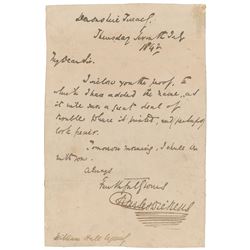 Devonshire Terrace,
Thursday Seventh July
1842
My Dear Sir,
I inclose you the proof, to
which I have added the name, as
it will save a great deal of
trouble where it is printed, and perhaps
look better.
Tomorrow morning, I shall be
with you.
Always
Faithfully Yours
Charles Dickens
William Hall Esquire